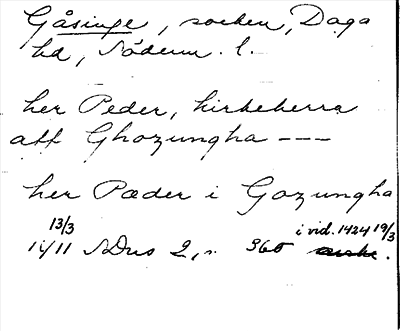 Gåsinge, socken, Daga
hd, Söderm. l.
her Peder, kirkeherra
att Ghozungha ---
her Pæder i Gozungha
13/3 i vid. 1424 19/3
1411 SDns 2, s. 360